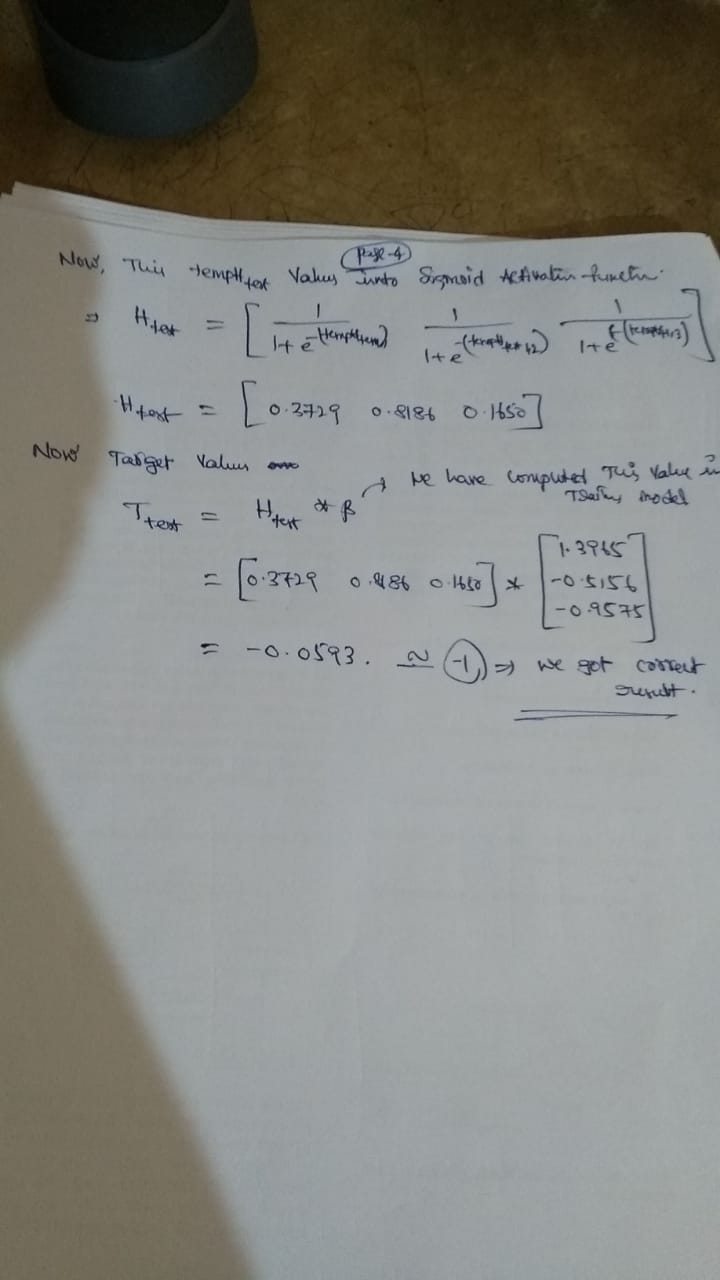 Page-4
Now, This tempH_test Values into Sigmoid Activation function.
⇒ H_test = [ 1/(1+e^-(tempH_test11)) 1/(1+e^-(tempH_test12)) 1/(1+e^-(tempH_test13)) ]
H_test = [0.3729 0.8186 0.1650]
Now Target Values
T_test = H_test * β → we have computed This value in
Training model
= [0.3729 0.8186 0.1650] * [1.3965
-0.5156
-0.9575]
= -0.0593. ≃ (-1) ⇒ we got correct
result.